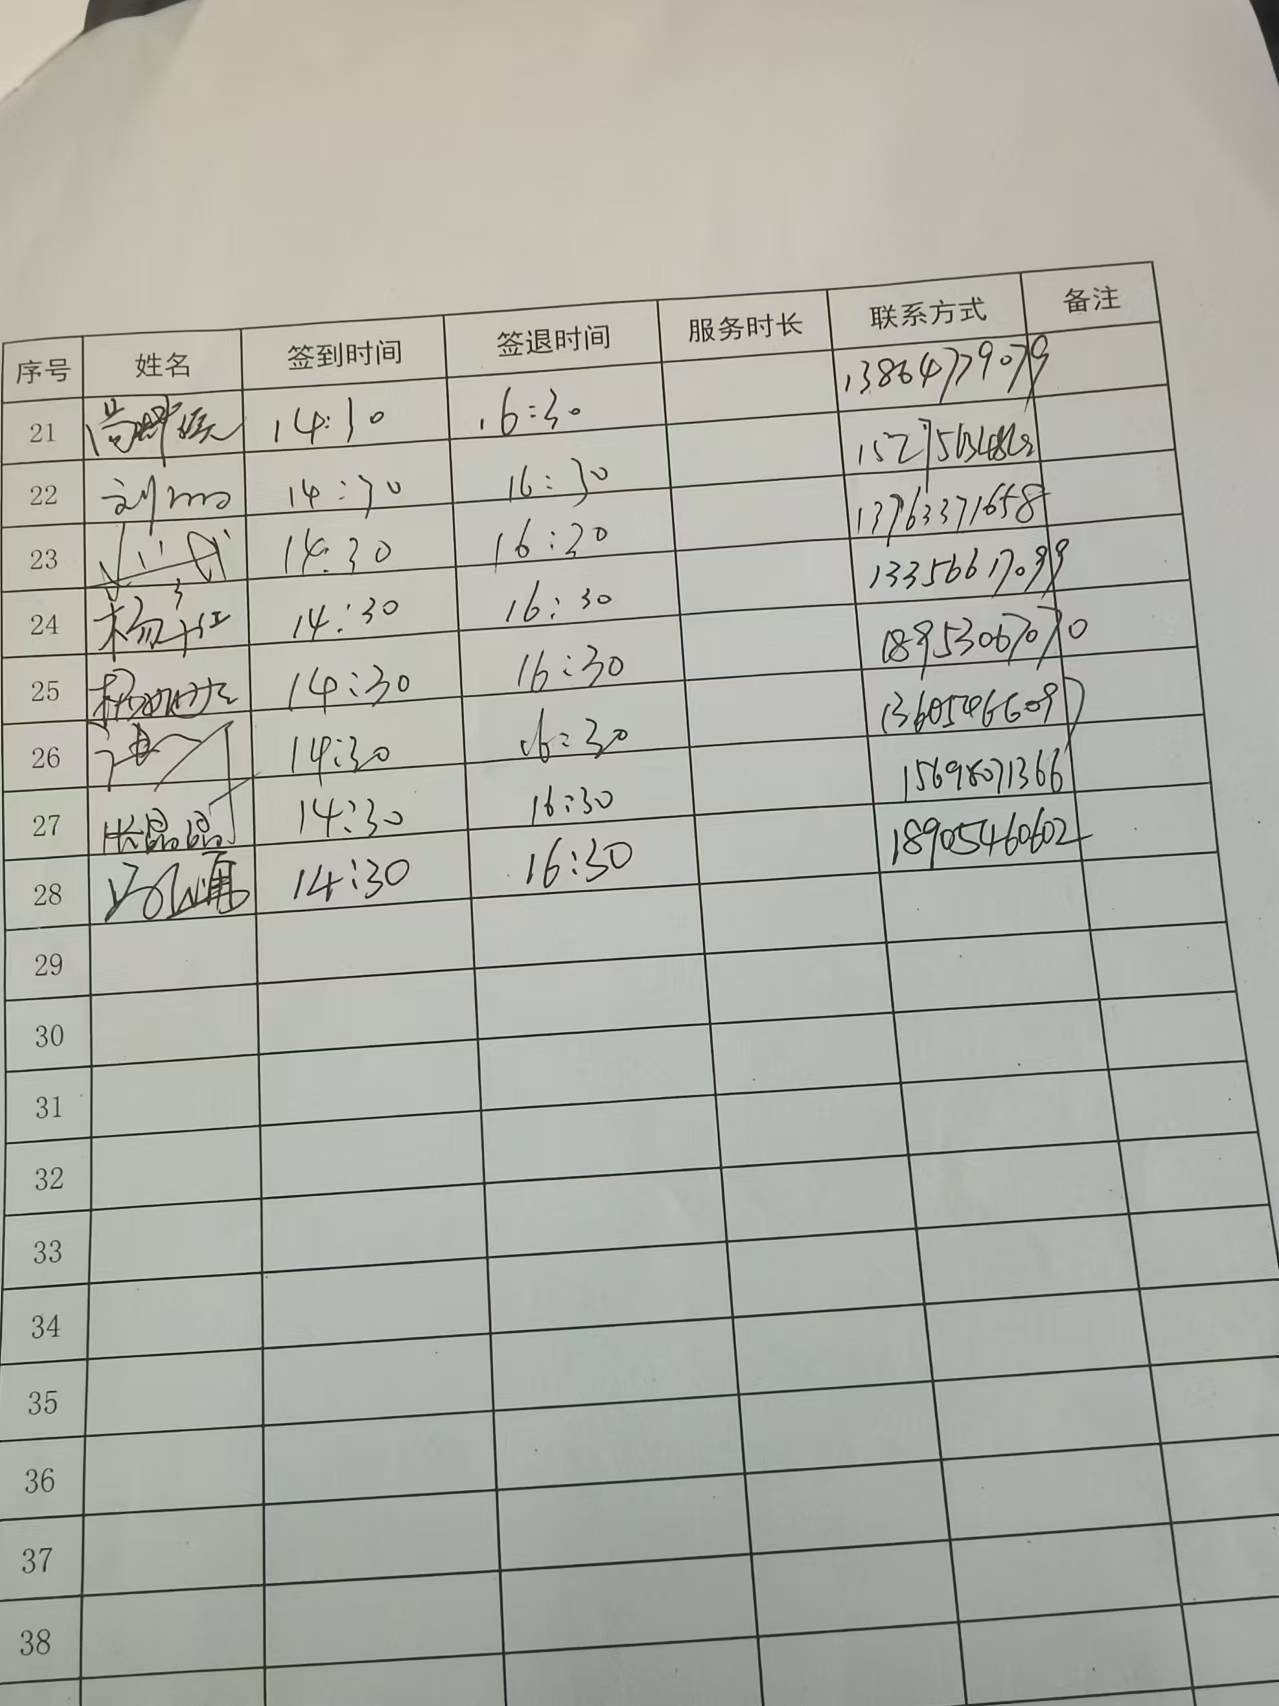 序号 姓名 签到时间 签退时间 服务时长 联系方式 备注
21 14:30 16:30 13864779079
22 刘 14:30 16:30
23 14:30 16:30 13763371658
24 杨 14:30 16:30 13356617099
25 杨 14:30 16:30 18953067070
26 14:30 16:30 13605466097
27 张晶晶 14:30 16:30 15698071366
28 14:30 16:30 18905460602
29
30
31
32
33
34
35
36
37
38